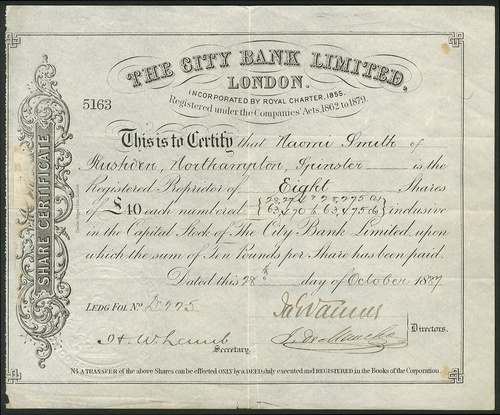 THE CITY BANK LIMITED,
LONDON.
INCORPORATED BY ROYAL CHARTER, 1855.
Registered under the Companies' Acts, 1862 to 1879.
5163
SHARE CERTIFICATE
This is to Certify that Naomi Smith of
Rushden, Northampton, Spinster is the
Registered Proprietor of Eight Shares
of £40 each numbered inclusive
in the Capital Stock of The City Bank Limited, upon
which the sum of Ten Pounds per Share has been paid.
Dated this 28th day of October 1887.
LEDG FOL No 225.
Directors.
H. W. Lamb
Secretary.
N.B. A TRANSFER of the above Shares can be effected ONLY by a DEED duly executed and REGISTERED, in the Books of the Corporation